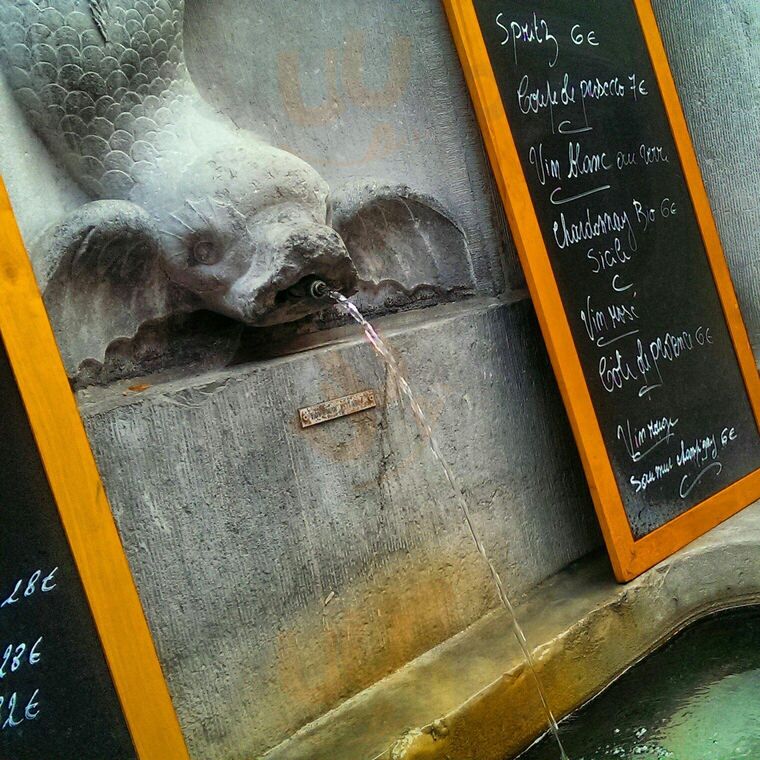 Spritz 6€
Coupe de prosecco 7€
Vin blanc au verre
Chardonnay Bio 6€
Sicile
Vin rosé
Côte de provence 6€
Vin rouge
Saumur champigny 6€
18€
28€
32€